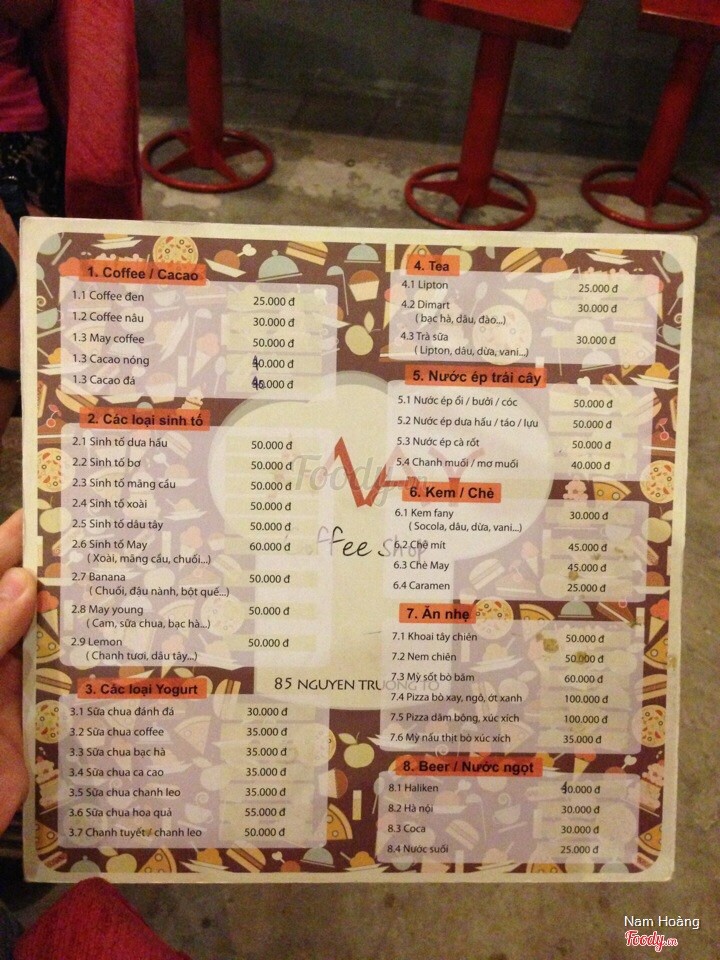 1. Coffee / Cacao
1.1 Coffee đen 25.000 đ
1.2 Coffee nâu 30.000 đ
1.3 May coffee 50.000 đ
1.3 Cacao nóng 40.000 đ
1.3 Cacao đá 45.000 đ
2. Các loại sinh tố
2.1 Sinh tố dưa hấu 50.000 đ
2.2 Sinh tố bơ 50.000 đ
2.3 Sinh tố mãng cầu 50.000 đ
2.4 Sinh tố xoài 50.000 đ
2.5 Sinh tố dâu tây 50.000 đ
2.6 Sinh tố May 60.000 đ
( Xoài, mãng cầu, chuối...)
2.7 Banana 50.000 đ
( Chuối, đậu nành, bột quế...)
2.8 May young 50.000 đ
( Cam, sữa chua, bạc hà...)
2.9 Lemon 50.000 đ
( Chanh tươi, dâu tây...)
3. Các loại Yogurt
3.1 Sữa chua đánh đá 30.000 đ
3.2 Sữa chua coffee 35.000 đ
3.3 Sữa chua bạc hà 35.000 đ
3.4 Sữa chua ca cao 35.000 đ
3.5 Sữa chua chanh leo 35.000 đ
3.6 Sữa chua hoa quả 55.000 đ
3.7 Chanh tuyết / chanh leo 50.000 đ
4. Tea
4.1 Lipton 25.000 đ
4.2 Dimart 30.000 đ
( bạc hà, dâu, đào...)
4.3 Trà sữa 30.000 đ
( Lipton, dâu, dừa, vani...)
5. Nước ép trái cây
5.1 Nước ép ổi / bưởi / cóc 50.000 đ
5.2 Nước ép dưa hấu / táo / lựu 50.000 đ
5.3 Nước ép cà rốt 50.000 đ
5.4 Chanh muối / mơ muối 40.000 đ
6. Kem / Chè
6.1 Kem fany 30.000 đ
( Socola, dâu, dừa, vani...)
6.2 Chè mít 45.000 đ
6.3 Chè May 45.000 đ
6.4 Caramen 25.000 đ
7. Ăn nhẹ
7.1 Khoai tây chiên 50.000 đ
7.2 Nem chiên 50.000 đ
7.3 Mỳ sốt bò băm 60.000 đ
7.4 Pizza bò xay, ngô, ớt xanh 100.000 đ
7.5 Pizza dăm bông, xúc xích 100.000 đ
7.6 Mỳ nấu thịt bò xúc xích 35.000 đ
8. Beer / Nước ngọt
8.1 Haliken 40.000 đ
8.2 Hà nội 30.000 đ
8.3 Coca 30.000 đ
8.4 Nước suối 25.000 đ
Foody.vn
ffee shop
85 NGUYEN TRUONG TO
Nam Hoàng
Foody.vn